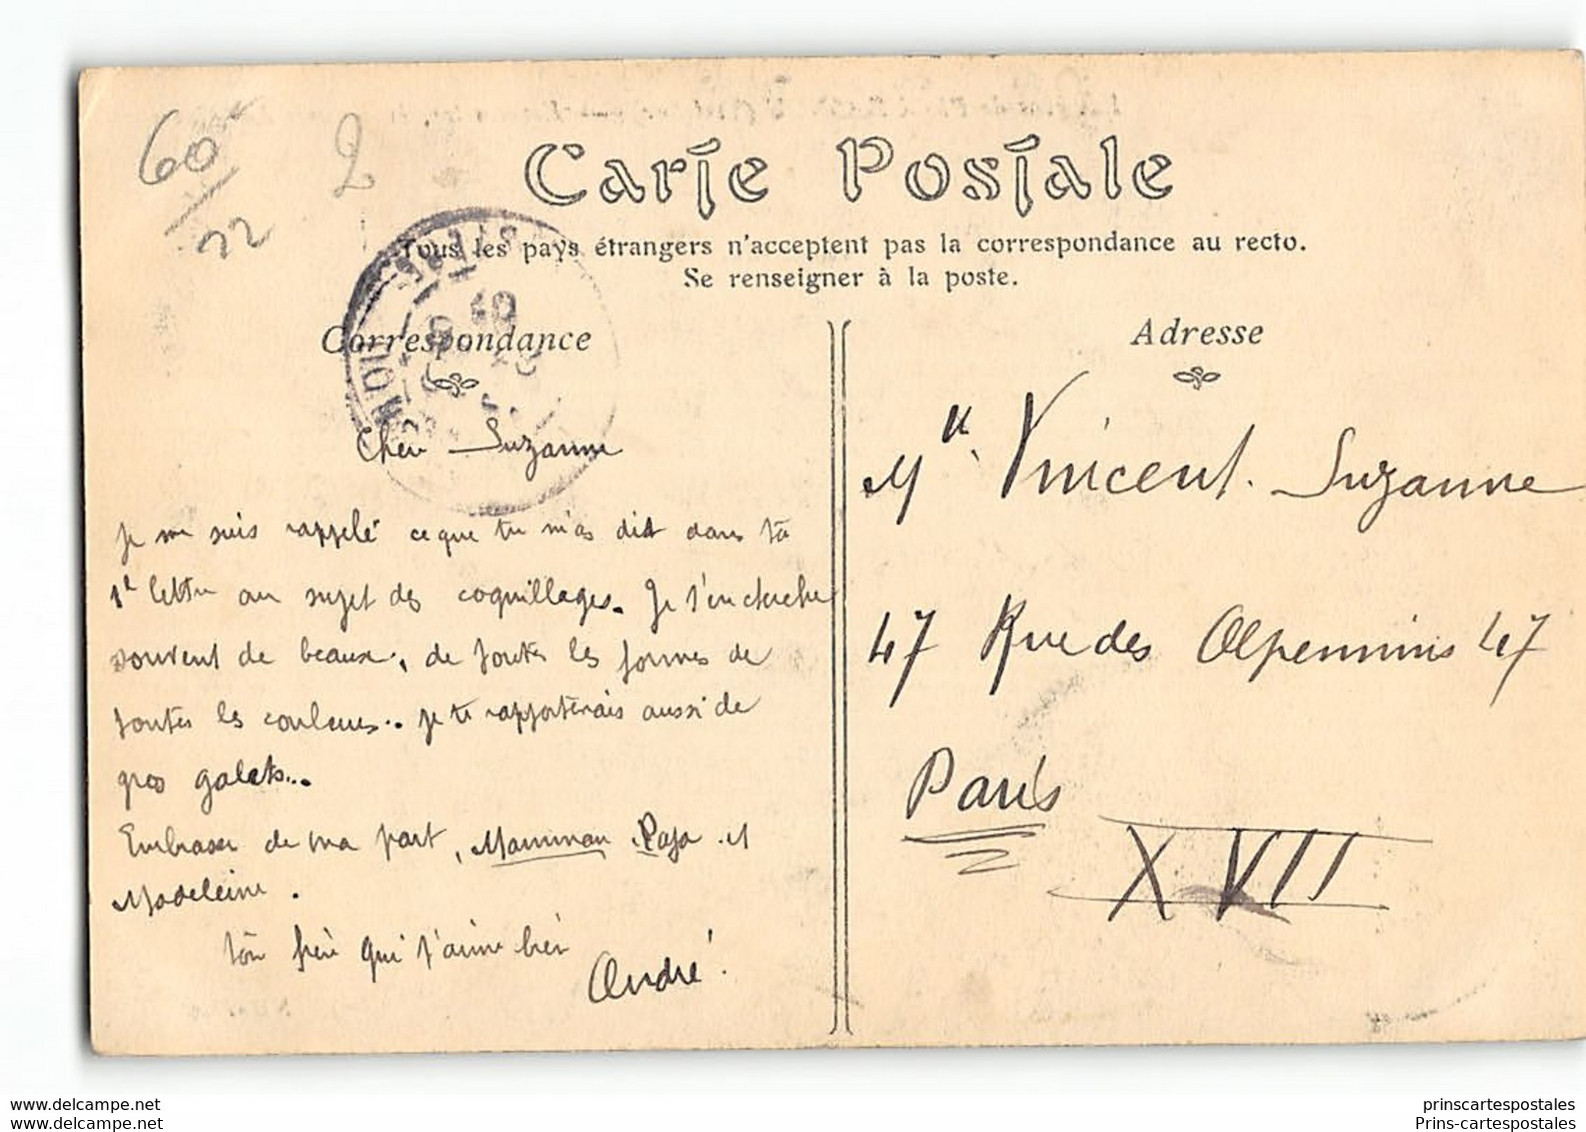 60
22
2
Carte Postale
Tous les pays étrangers n'acceptent pas la correspondance au recto.
Se renseigner à la poste.
Correspondance
Chère Suzanne
Je me suis rappelé ce que tu m'as dit dans ta
1e lettre au sujet des coquillages. Je t'en cherche
souvent de beaux, de toutes les formes de
toutes les couleurs.. je te rapporterais aussi de
gros galets...
Embrasse de ma part, Maman Papa et
Madeleine.
ton frère qui t'aime bien
André!
Adresse
Mlle Vincent. Suzanne
47 Rue des Apennins 47
Paris
XVII
www.delcampe.net
prinscartespostales
Prins-cartespostales